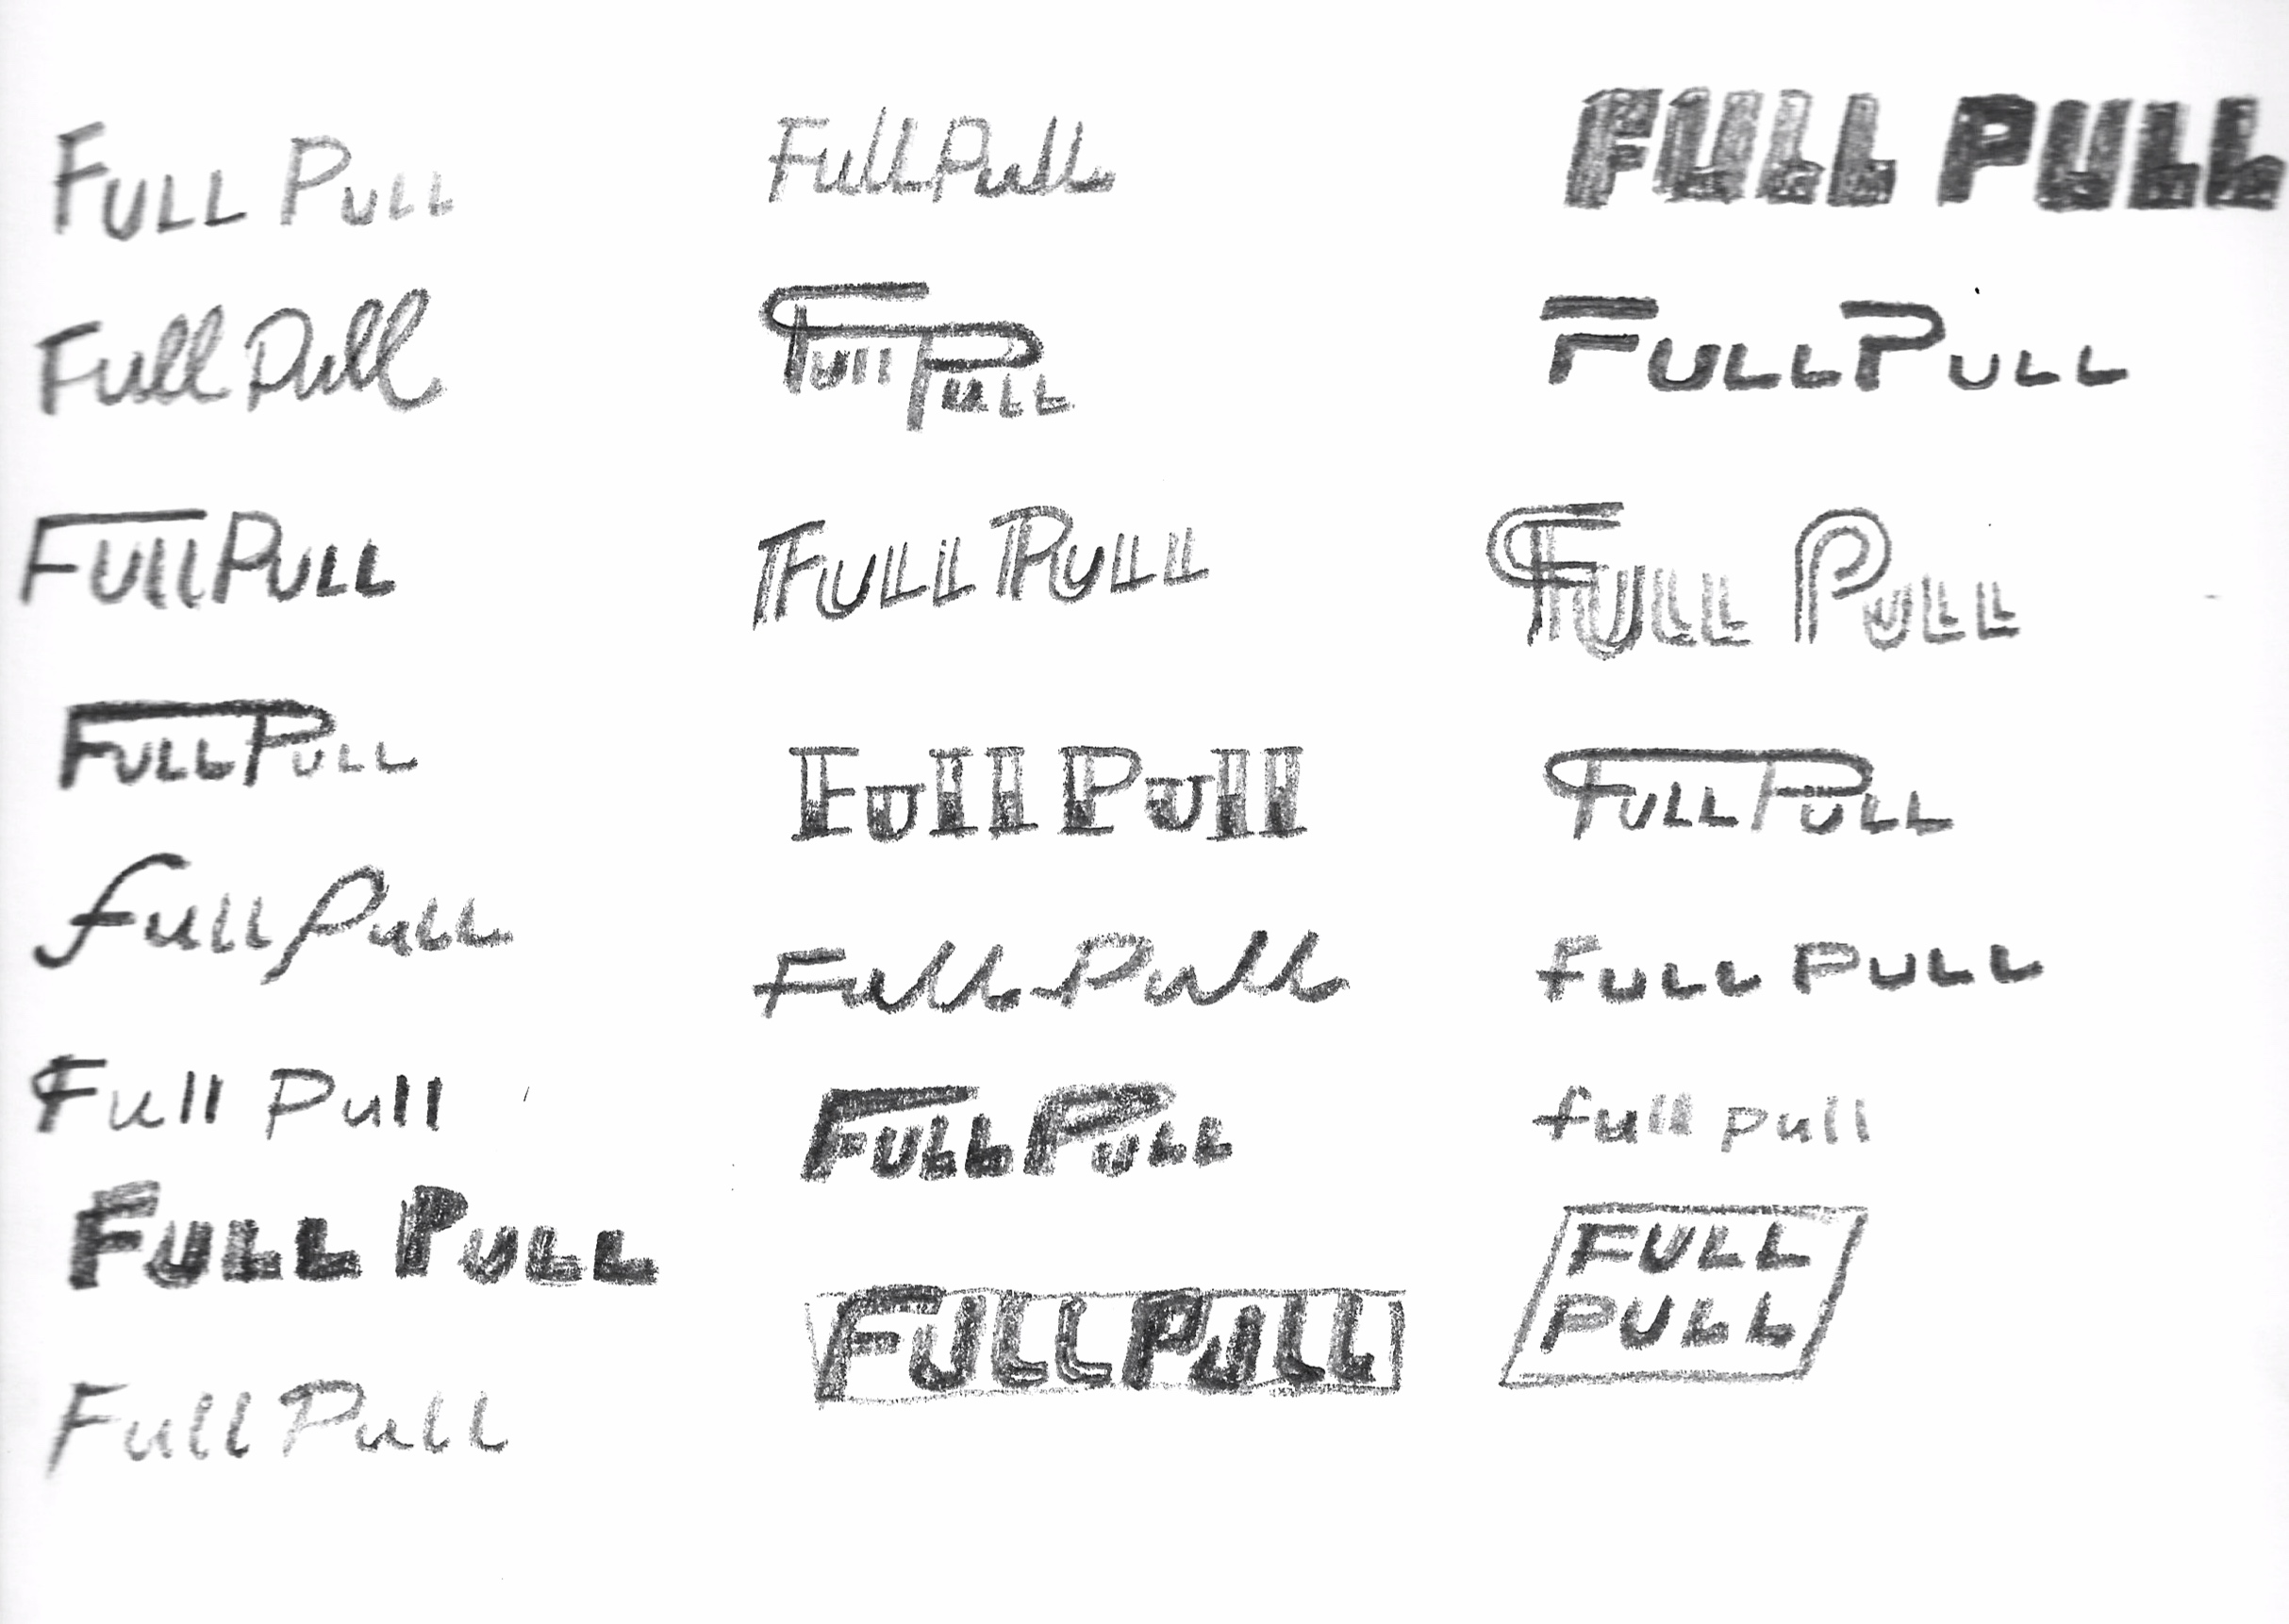 FULL PULL
Full Pull
Full PULL
FULL PULL
full Pull
Full Pull
FULL PULL
Full Pull
Full Pull
Full PULL
FULL PULL
Full Pull
Full Pull
FULL PULL
FULL PULL
FULL PULL
FULL PULL
FULL PULL
FULL PULL
fULL PULL
full pull
FULL
PULL